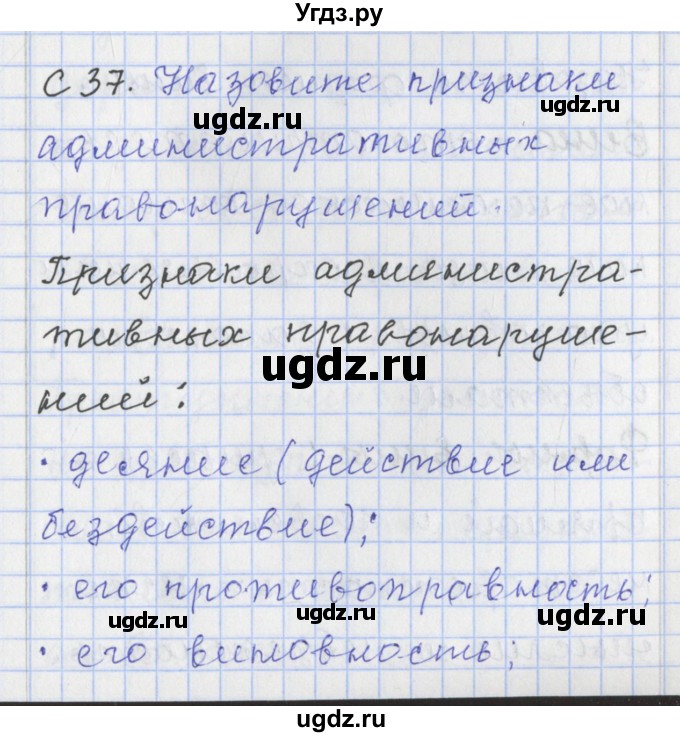 Угдз.ру
С 37. Назовите признаки
ugdz.ru ugdz.ru
административных
правонарушений.
Признаки администра-
тивных правонаруше-
ugdz.ru
ний:
• деяние (действие или
бездействие);
• его противоправность;
ugdz.ru ugdz.ru ugdz.ru
• его виновность;
ugdz.ru